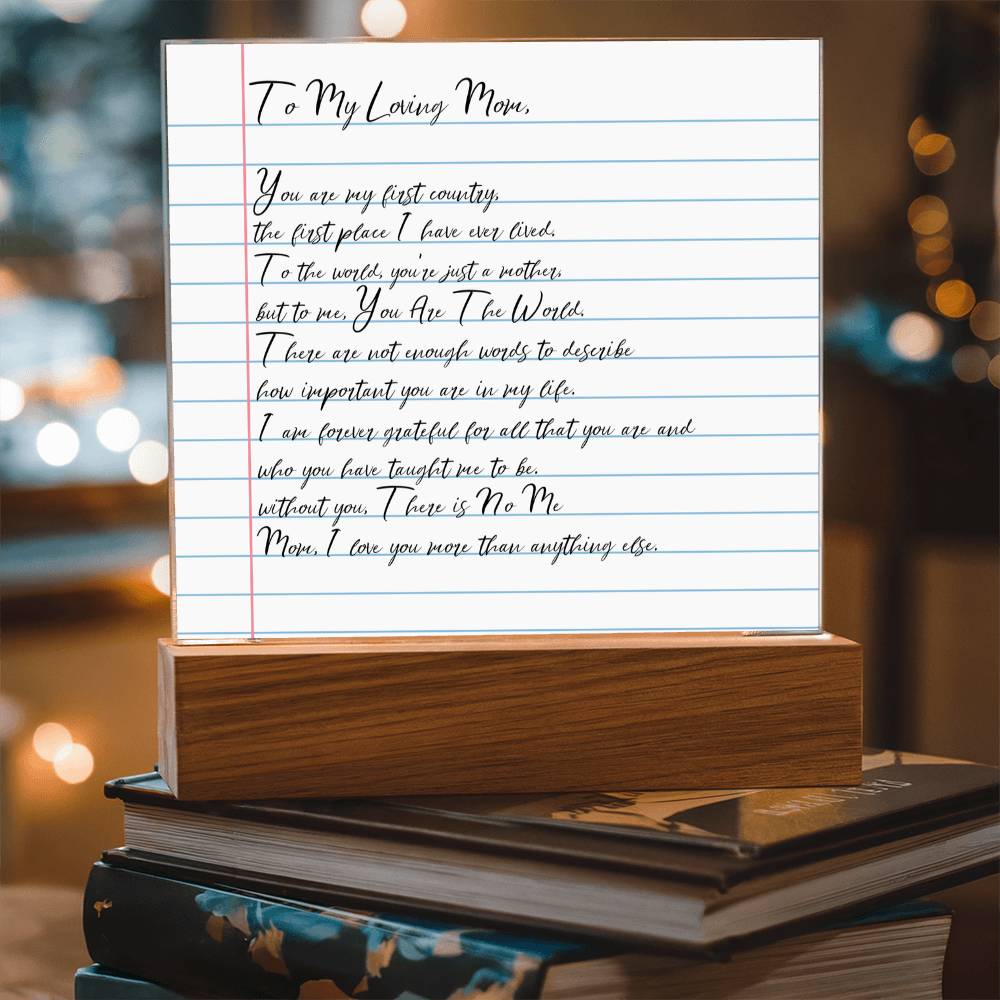 To My Loving Mom,
You are my first country,
the first place I have ever lived.
To the world, you're just a mother,
but to me, You Are The World.
There are not enough words to describe
how important you are in my life.
I am forever grateful for all that you are and
who you have taught me to be.
without you, There is No Me
Mom, I love you more than anything else.